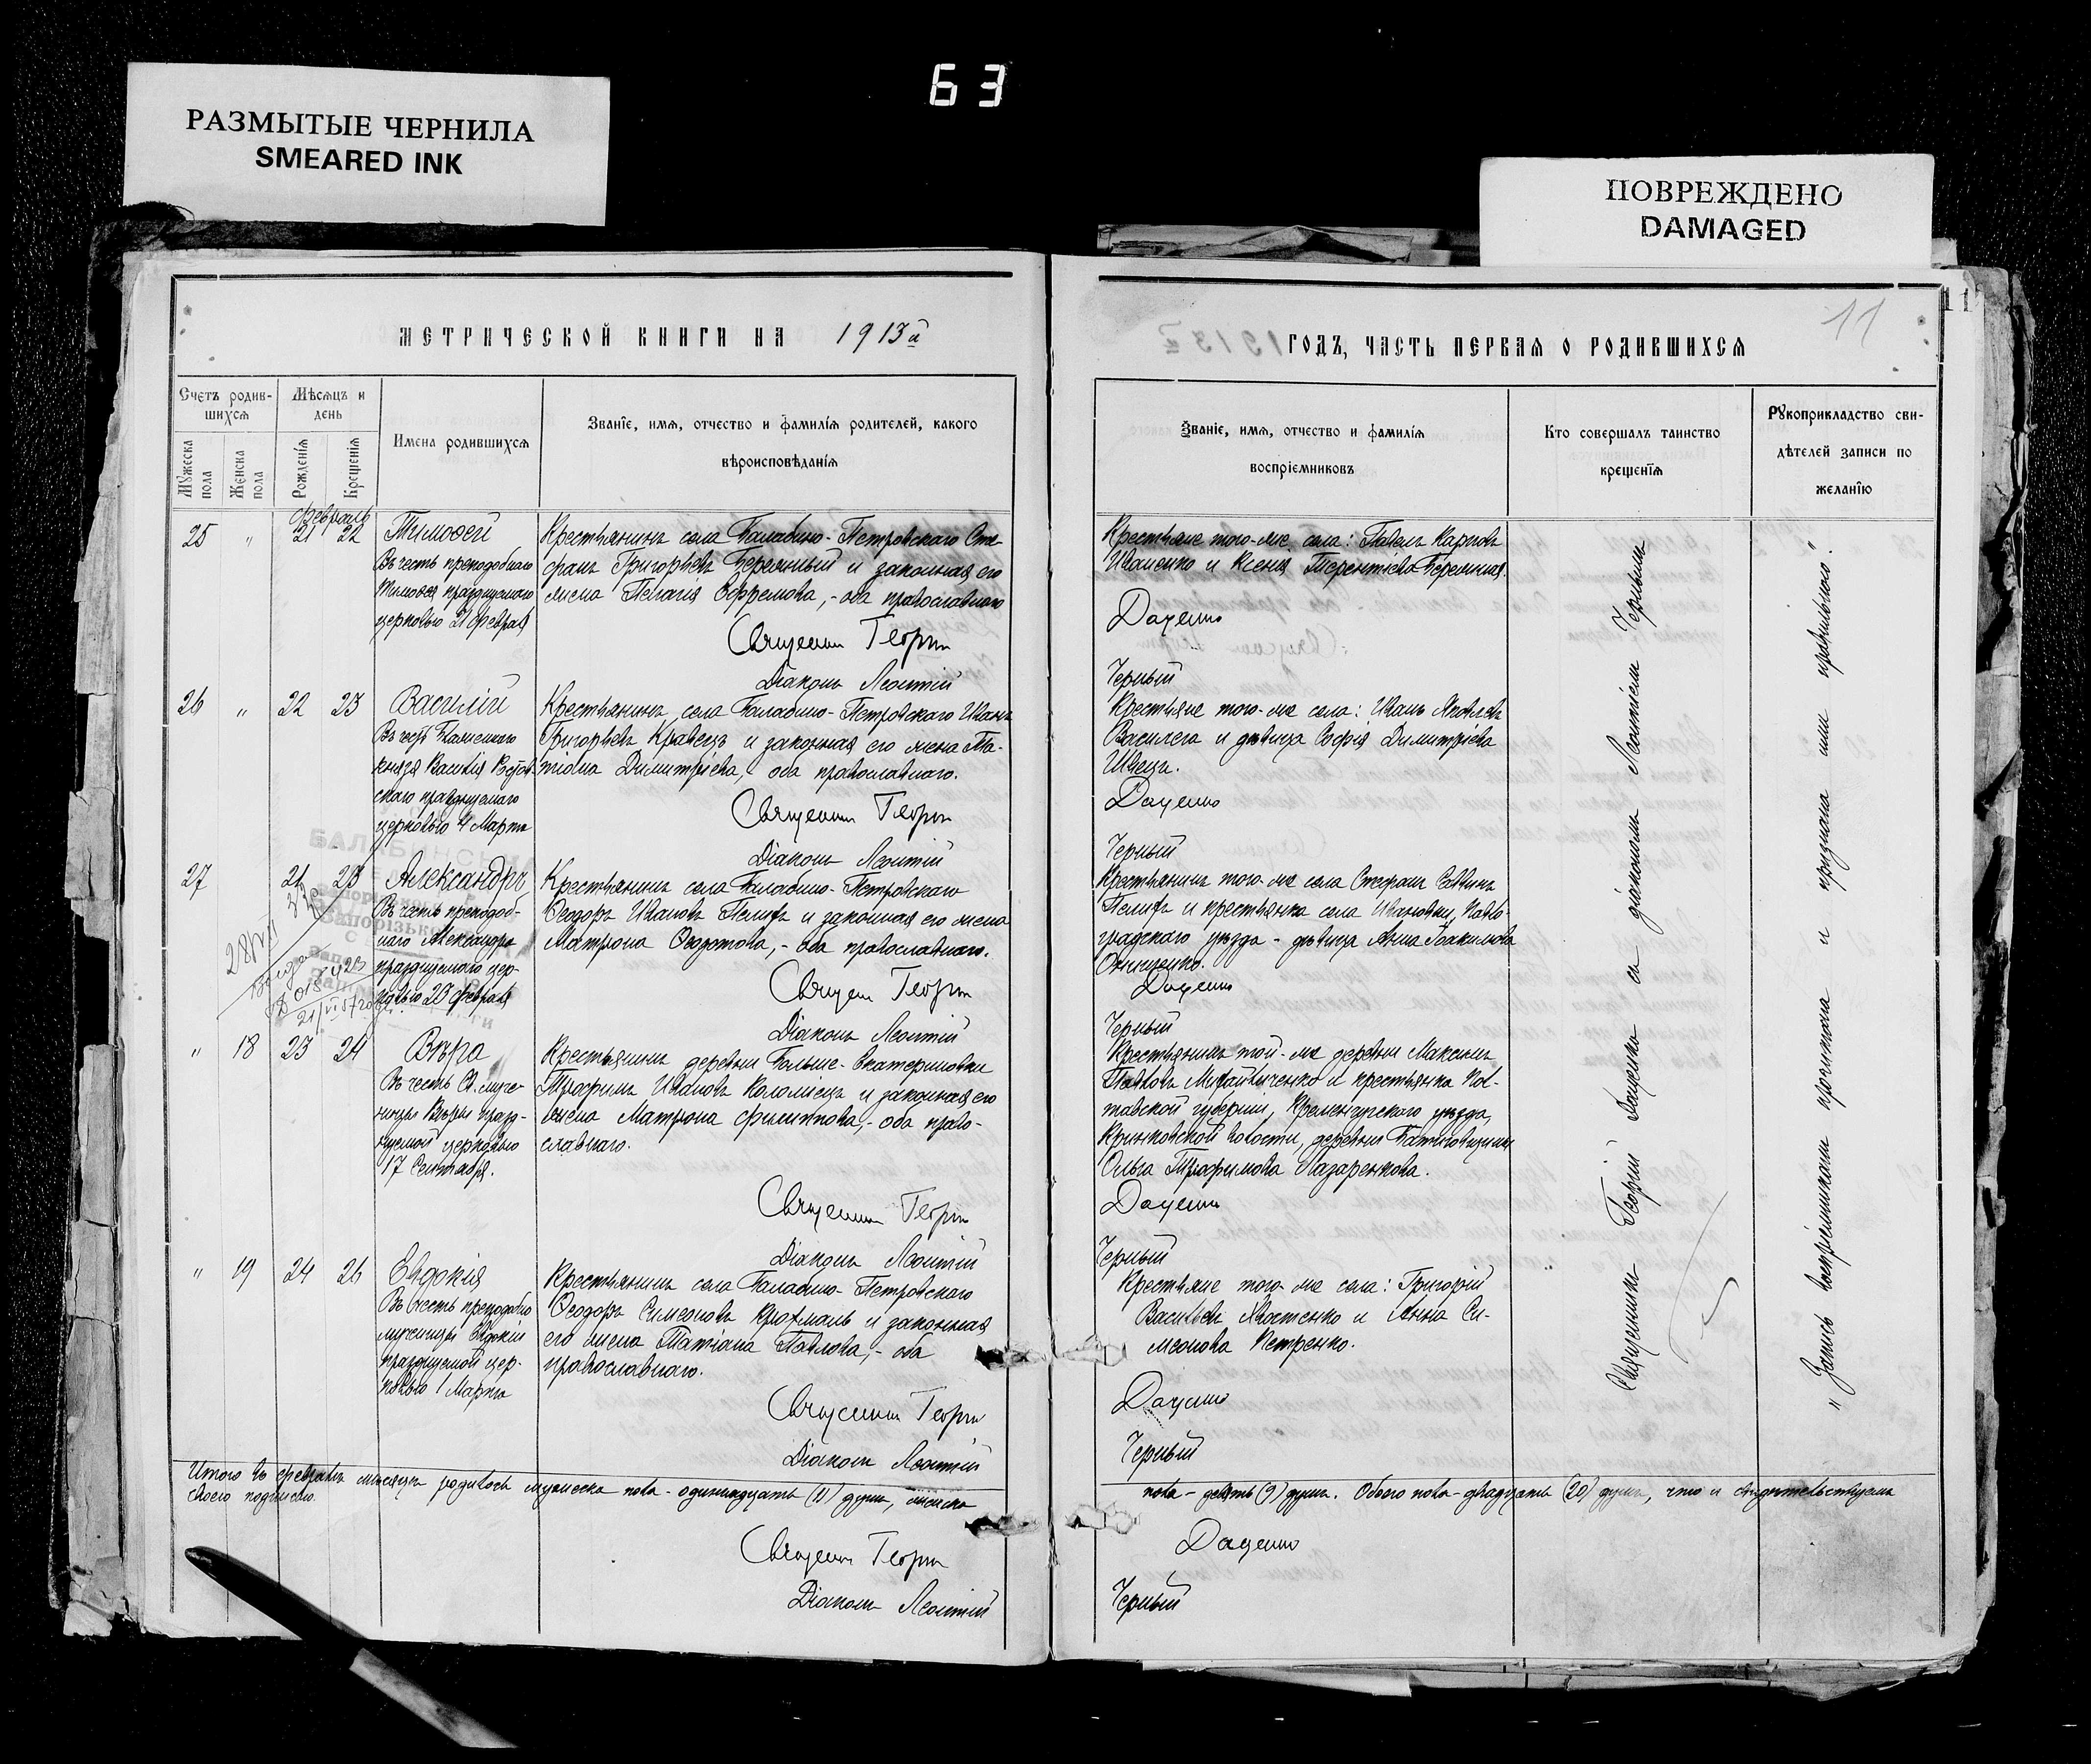 63
РАЗМЫТЫЕ ЧЕРНИЛА
SMEARED INK
ПОВРЕЖДЕНО
DAMAGED
11
11
МЕТРИЧЕСКОЙ КНИГИ НА 1913й
Счетъ родив-
шихся
Мѣсяцъ и
день
Мужеска
пола
Женска
пола
Рожденія
Крещенія
Имена родившихся
Званіе, имя, отчество и фамилія родителей, какого
вѣроисповѣданія
Февраль
25 " 21 22
Тимоѳей
Въ честь преподобнаго
Тимоѳея празднуемаго
церковью 21 Февраля
Крестьянинъ села Балабино-Петровскаго Сте-
фанъ Григорьевъ Беременный и законная его
жена Пелагія Ефремова,- оба православнаго
Священникъ Георгій
Діаконъ Леонтій
26 " 22 23
Василій
Въ честь
князя Василія Ростов-
скаго празднуемаго
церковью 4 Марта
Крестьянинъ села Балабино-Петровскаго Иванъ
Григорьевъ Кравецъ и законная его жена Та-
тіана Димитріева,- оба православнаго.
Священникъ Георгій
Діаконъ Леонтій
27 21 23
Александръ
Въ честь преподоб-
наго Александра
празднуемаго цер-
ковью 23 Февраля
Крестьянинъ села Балабино-Петровскаго
Ѳеодоръ Ивановъ Пелихъ и законная его жена
Матрона Ѳеодотова,- оба православнаго.
Священ Георгій
Діаконъ Леонтій
" 18 23 24
Вѣра
Въ честь Св. муче-
ницы Вѣры празд-
нуемой церковью
17 Сентября.
Крестьянинъ деревни Больше-Екатериновки
Трофимъ Ивановъ Коломіецъ и законная его
жена Матрона Филиппова,- оба право-
славнаго.
Священникъ Георгій
Діаконъ Леонтій
" 19 24 26
Евдокія
Въ честь преподобно
мученицы Евдокіи
празднуемой цер-
ковью 1 Марта
Крестьянинъ села Балабино-Петровскаго
Ѳеодоръ Симеоновъ Крохмаль и законная
его жена Татіана Павлова,- оба
православнаго.
Священникъ Георгій
Діаконъ Леонтій
Итого въ февралѣ мѣсяцѣ родилось мужеска пола - одиннадцать (11) душъ, женска
своею подписью.
Священникъ Георгій
Діаконъ Леонтій
ГОДЪ, ЧАСТЬ ПЕРВАЯ О РОДИВШИХСЯ
Званіе, имя, отчество и фамилія
воспріемниковъ
Кто совершалъ таинство
крещенія
Рукоприкладство сви-
дѣтелей записи по
желанію
Крестьяне того-же села: Павелъ Карповъ
Иваненко и Ксенія Терентіева Беременная.
Даценко
Черный
Крестьяне того-же села: Иванъ Яковлевъ
Василега и дѣвица Софія Димитріева
Швецъ.
Даценко
Черный
Крестьянинъ того-же села Стефанъ Саввинъ
Пелихъ и крестьянка села Ивановки, Павло-
градскаго уѣзда - дѣвица Анна Іоакимова
Онищенко.
Даценко
Черный
Крестьянинъ той-же деревни Максимъ
Павловъ Михайличенко и крестьянка Пол-
тавской губерніи, Кременчугскаго уѣзда,
Кринковской волости, деревни
Ольга Трофимова Лазаренкова.
Даценко
Черный
Крестьяне того-же села: Григорій
Васильевъ Хвостенко и Анна Си-
меонова Петренко.
Даценко
Черный
Священникъ Георгій Даценко съ діакономъ Леонтіемъ Чернымъ
"Запись воспріемникамъ прочитана и признана ими правильною".
пола - девять (9) душъ. Обоего пола - двадцать (20) душъ, что и свидѣтельствуемъ
Даценко
Черный